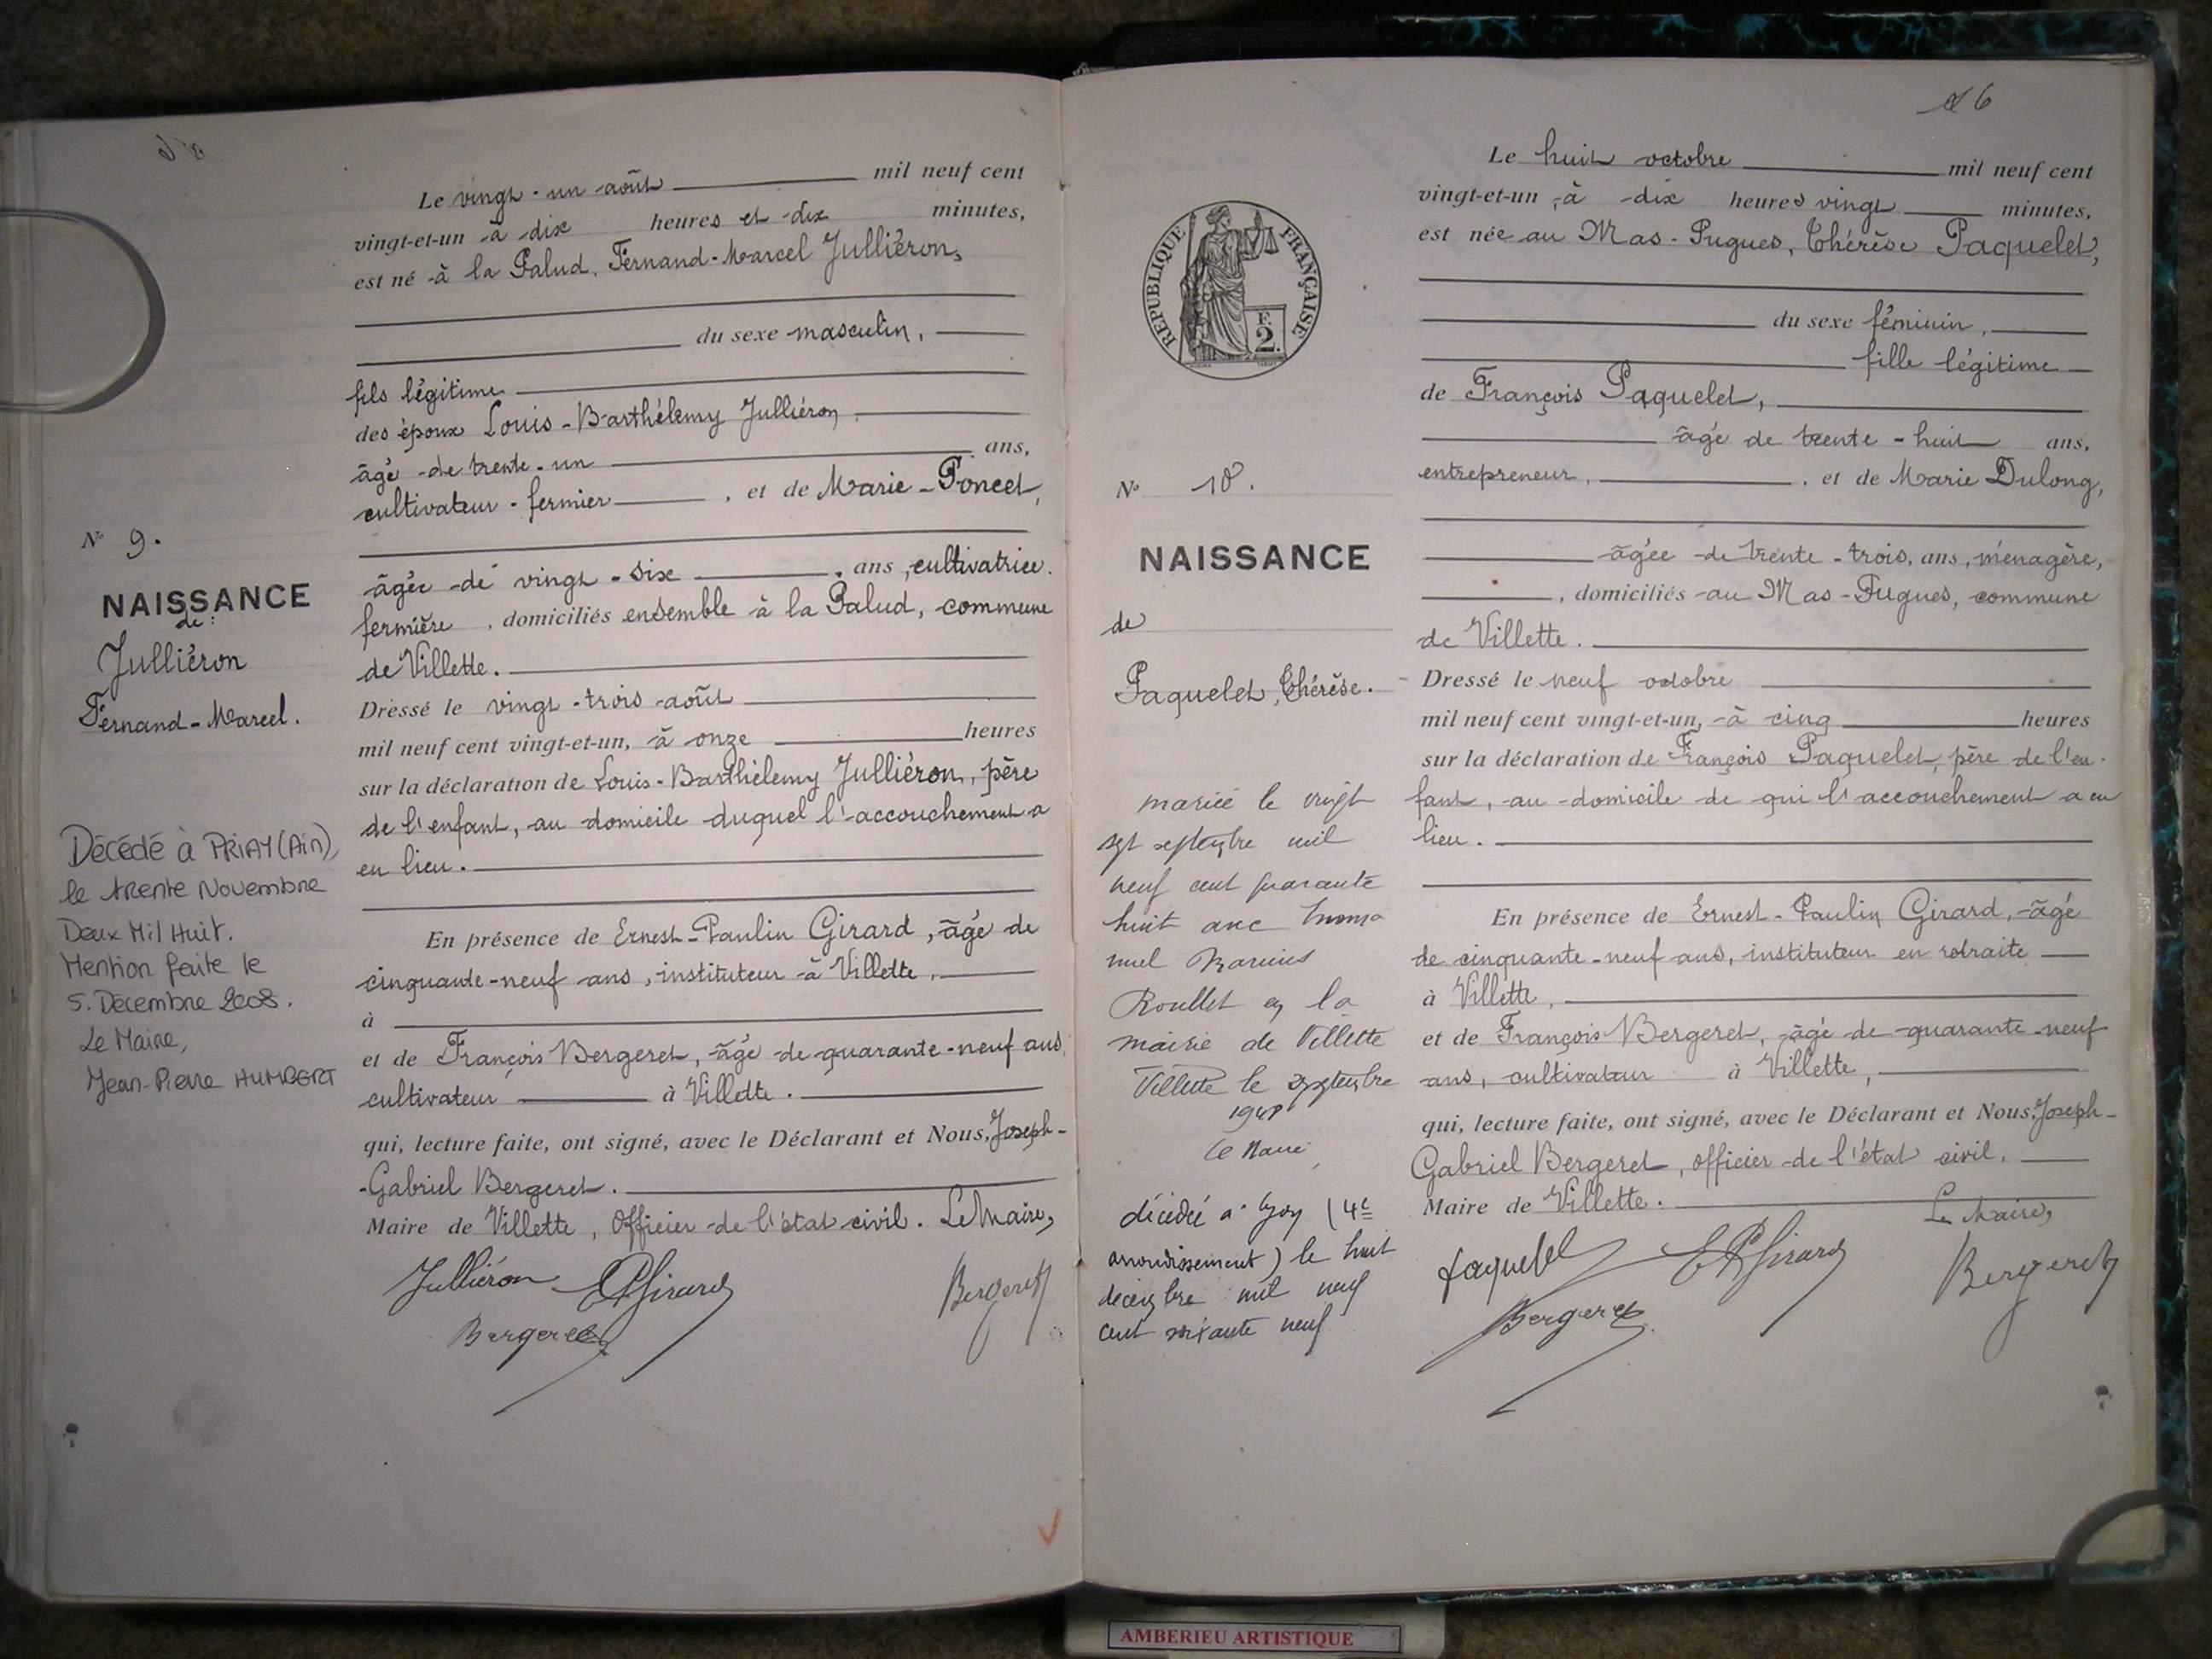 Le vingt-un août mil neuf cent
vingt-et-un à dix heures et dix minutes,
est né à la Palud, Fernand-Marcel Julliéron,
du sexe masculin,
fils légitime
des époux Louis-Barthélemy Julliéron,
âgé de trente-un ans,
cultivateur-fermier, et de Marie Poncet,
âgée de vingt-six ans, cultivatrice.
fermière, domiciliés ensemble à la Palud, commune
de Villette.
Dressé le vingt-trois août
mil neuf cent vingt-et-un, à onze heures
sur la déclaration de Louis-Barthélemy Julliéron, père
de l'enfant, au domicile duquel l'accouchement a
eu lieu.
En présence de Ernest-Paulin Girard, âgé de
cinquante-neuf ans, instituteur à Villette,
à
et de François Bergeret, âgé de quarante-neuf ans,
cultivateur à Villette.
qui, lecture faite, ont signé, avec le Déclarant et Nous, Joseph-
Gabriel Bergeret.
Maire de Villette, Officier de l'état civil. Le Maire,
Julliéron EPGirard Bergeret
Bergeret
N° 9.
NAISSANCE
de:
Julliéron
Fernand-Marcel.
Décédé à PRIAY (Ain),
le trente Novembre
Deux Mil Huit.
Mention faite le
5. Décembre 2008.
Le Maire,
Jean-Pierre HUMBERT
6
RÉPUBLIQUE FRANÇAISE
F.
2.
N° 10.
NAISSANCE
de
Paquelet, Thérèse.
mariée le vingt
sept septembre mil
neuf cent quarante
huit avec Emma
nuel Marius
Roullet en la
mairie de Villette
Villette le septembre
1948
Le Maire,
décédée à Lyon (4e
arrondissement) le huit
décembre mil neuf
cent soixante neuf
Le huit octobre mil neuf cent
vingt-et-un, à dix heures vingt minutes,
est née au Mas-Pugues, Thérèse Paquelet,
du sexe féminin,
fille légitime
de François Paquelet,
âgé de trente-huit ans,
entrepreneur, et de Marie Dulong,
âgée de trente-trois, ans, ménagère,
, domiciliés au Mas-Pugues, commune
de Villette.
Dressé le neuf octobre
mil neuf cent vingt-et-un, à cinq heures
sur la déclaration de François Paquelet, père de l'en-
fant, au domicile de qui l'accouchement a eu
lieu.
En présence de Ernest-Paulin Girard, âgé
de cinquante-neuf ans, instituteur en retraite
à Villette,
et de François Bergeret, âgé de quarante-neuf
ans, cultivateur à Villette,
qui, lecture faite, ont signé, avec le Déclarant et Nous, Joseph-
Gabriel Bergeret, officier de l'état civil.
Maire de Villette. Le Maire,
Paquelet EPGirard Bergeret
Bergeret
AMBERIEU ARTISTIQUE